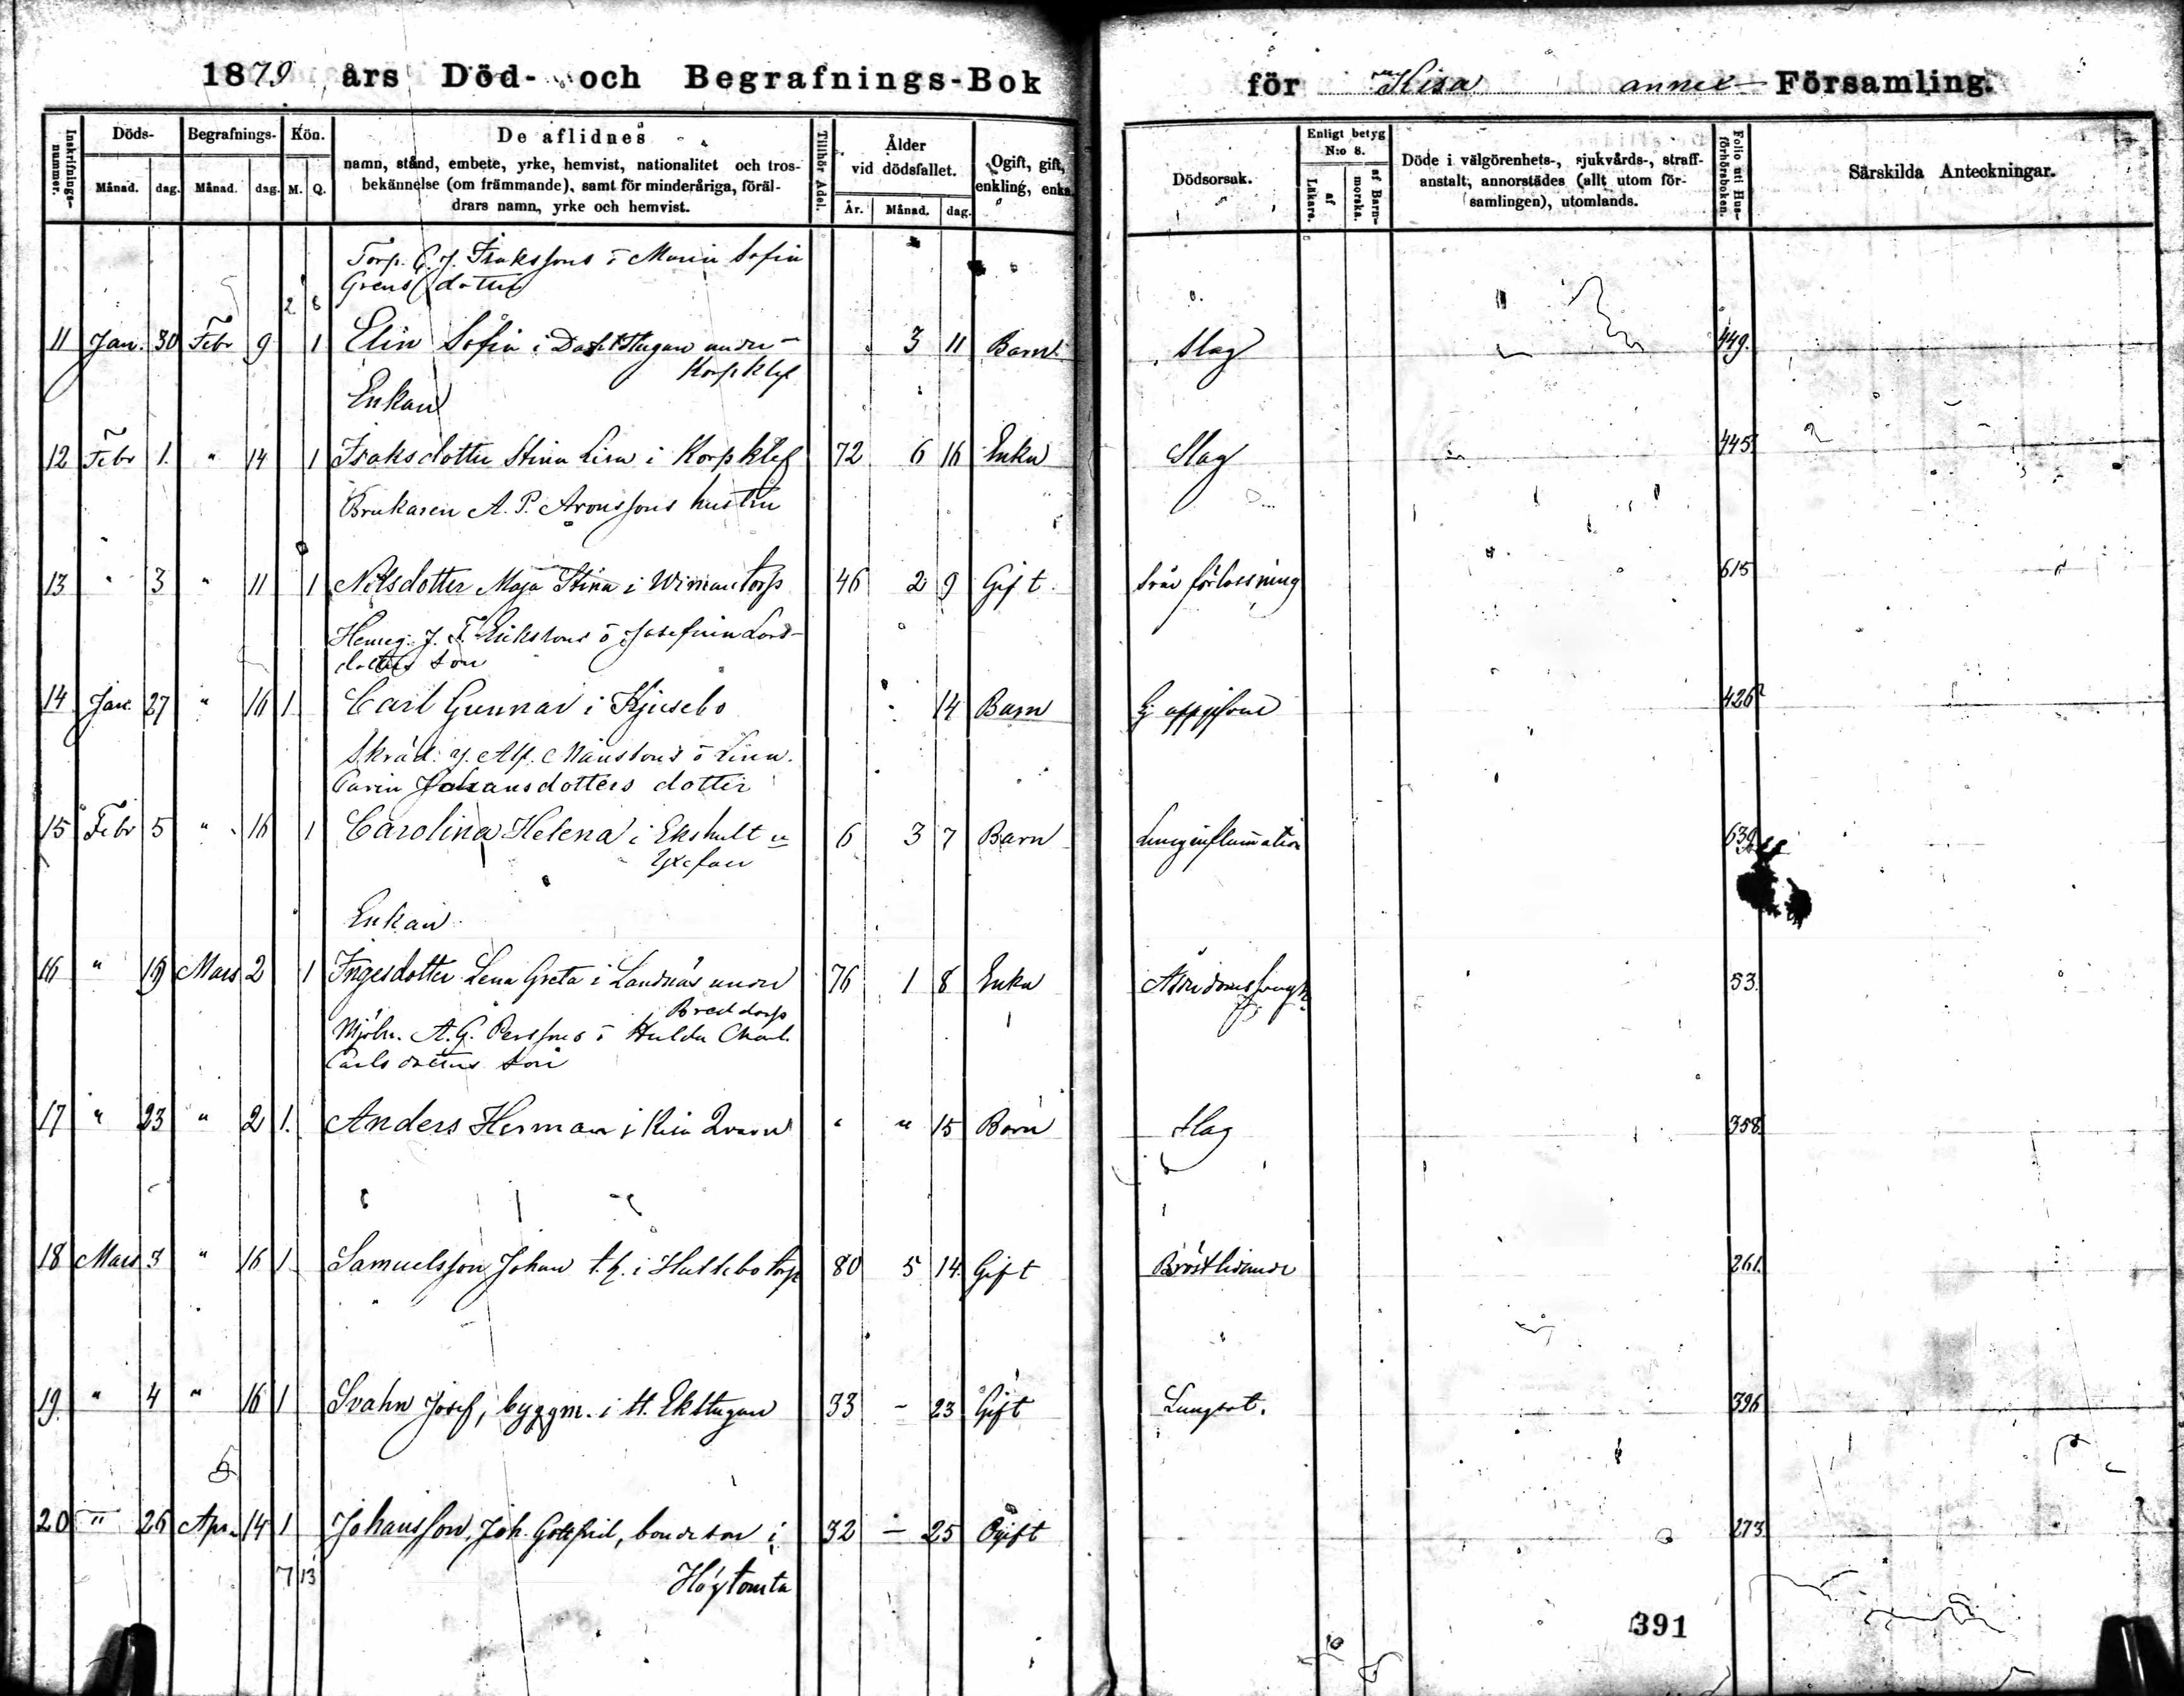 1879 års Död- och Begrafnings-Bok för Kisa annex Församling.
Inskrifnings-nummer. Döds- Begrafnings- Kön. De aflidnes Tillhör Adel. Ålder vid dödsfallet. Ogift, gift, enkling, enka Dödsorsak. Enligt betyg N:o 8. Döde i välgörenhets-, sjukvårds-, straff-anstalt, annorstädes (allt utom för-samlingen), utomlands. Folio uti Hus-förhörsboken. Särskilda Anteckningar.
Månad. dag. Månad. dag. M. Q. namn, stånd, embete, yrke, hemvist, nationalitet och tros-bekännelse (om främmande), samt för minderåriga, föräl-drars namn, yrke och hemvist. År. Månad. dag. af Läkare. af Barn-morska.
Torp. G. J. Isakssons o Maria Sofia
Grens dotter
2 8
11 Jan. 30 Febr 9 1 Elin Sofia i under 3 11 Barn Slag 449.
Korpklef
Enkan
12 Febr 1. " 14 1 Isaksdotter Stina Lisa i Korpklef 72 6 16 Enka Slag 445
Brukaren A. P. Aronssons hustru
13 " 3 " 11 1 Nilsdotter Maja Stina i Wimantorp 46 2 9 Gift Svår förlossning 615
Hemeg. J. F. Erikssons o Josefina Lars-
dotters son
14 Jan. 27 " 16 1 Carl Gunnar i Kjusebo 14 Barn Ej uppgifven 426
Skräd. Månssons o Lina
Carin Johansdotters dotter
15 Febr 5 " 16 1 Carolina Helena i Ekshult u 6 3 7 Barn Lunginflammation 639
Yxefall
Enkan
16 " 19 Mars 2 1 Ingesdotter Lena Greta i Landnäs under 76 1 8 Enka Ålderdomssvagh. 53.
Breddorp
Mjöln. A. G. Perssons o Hulda Charl.
Carlsdotters son
17 " 23 " 2 1. Anders Herman i Kisa Qvarn " " 15 Barn Slag 358
18 Mars 3 " 16 1 Samuelsson Johan t. h. i Hultebotorp 80 5 14. Gift Bröstlidande 261.
19. " 4 " 16 1 Svahn Josef, byggm. i St. Ekstugan 33 - 23 Gift Lungsot. 396
20 " 26 Apr. 14 1 Johansson, Joh. Gottfrid, bondeson i 32 - 25 Ogift 273.
7 13 Högtomta
391